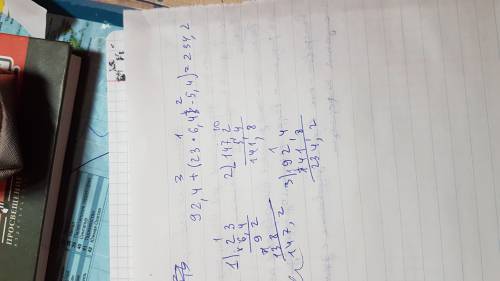 3 1 2
92,4+(23·6,4-5,4)=234,2
1
1) 23
×6,4
92
+
138
147,2
10
2) 147,2
5,4
141,8
1
3) 92,4
+141,8
234,2
ПРОСВЕЩЕНИЕ